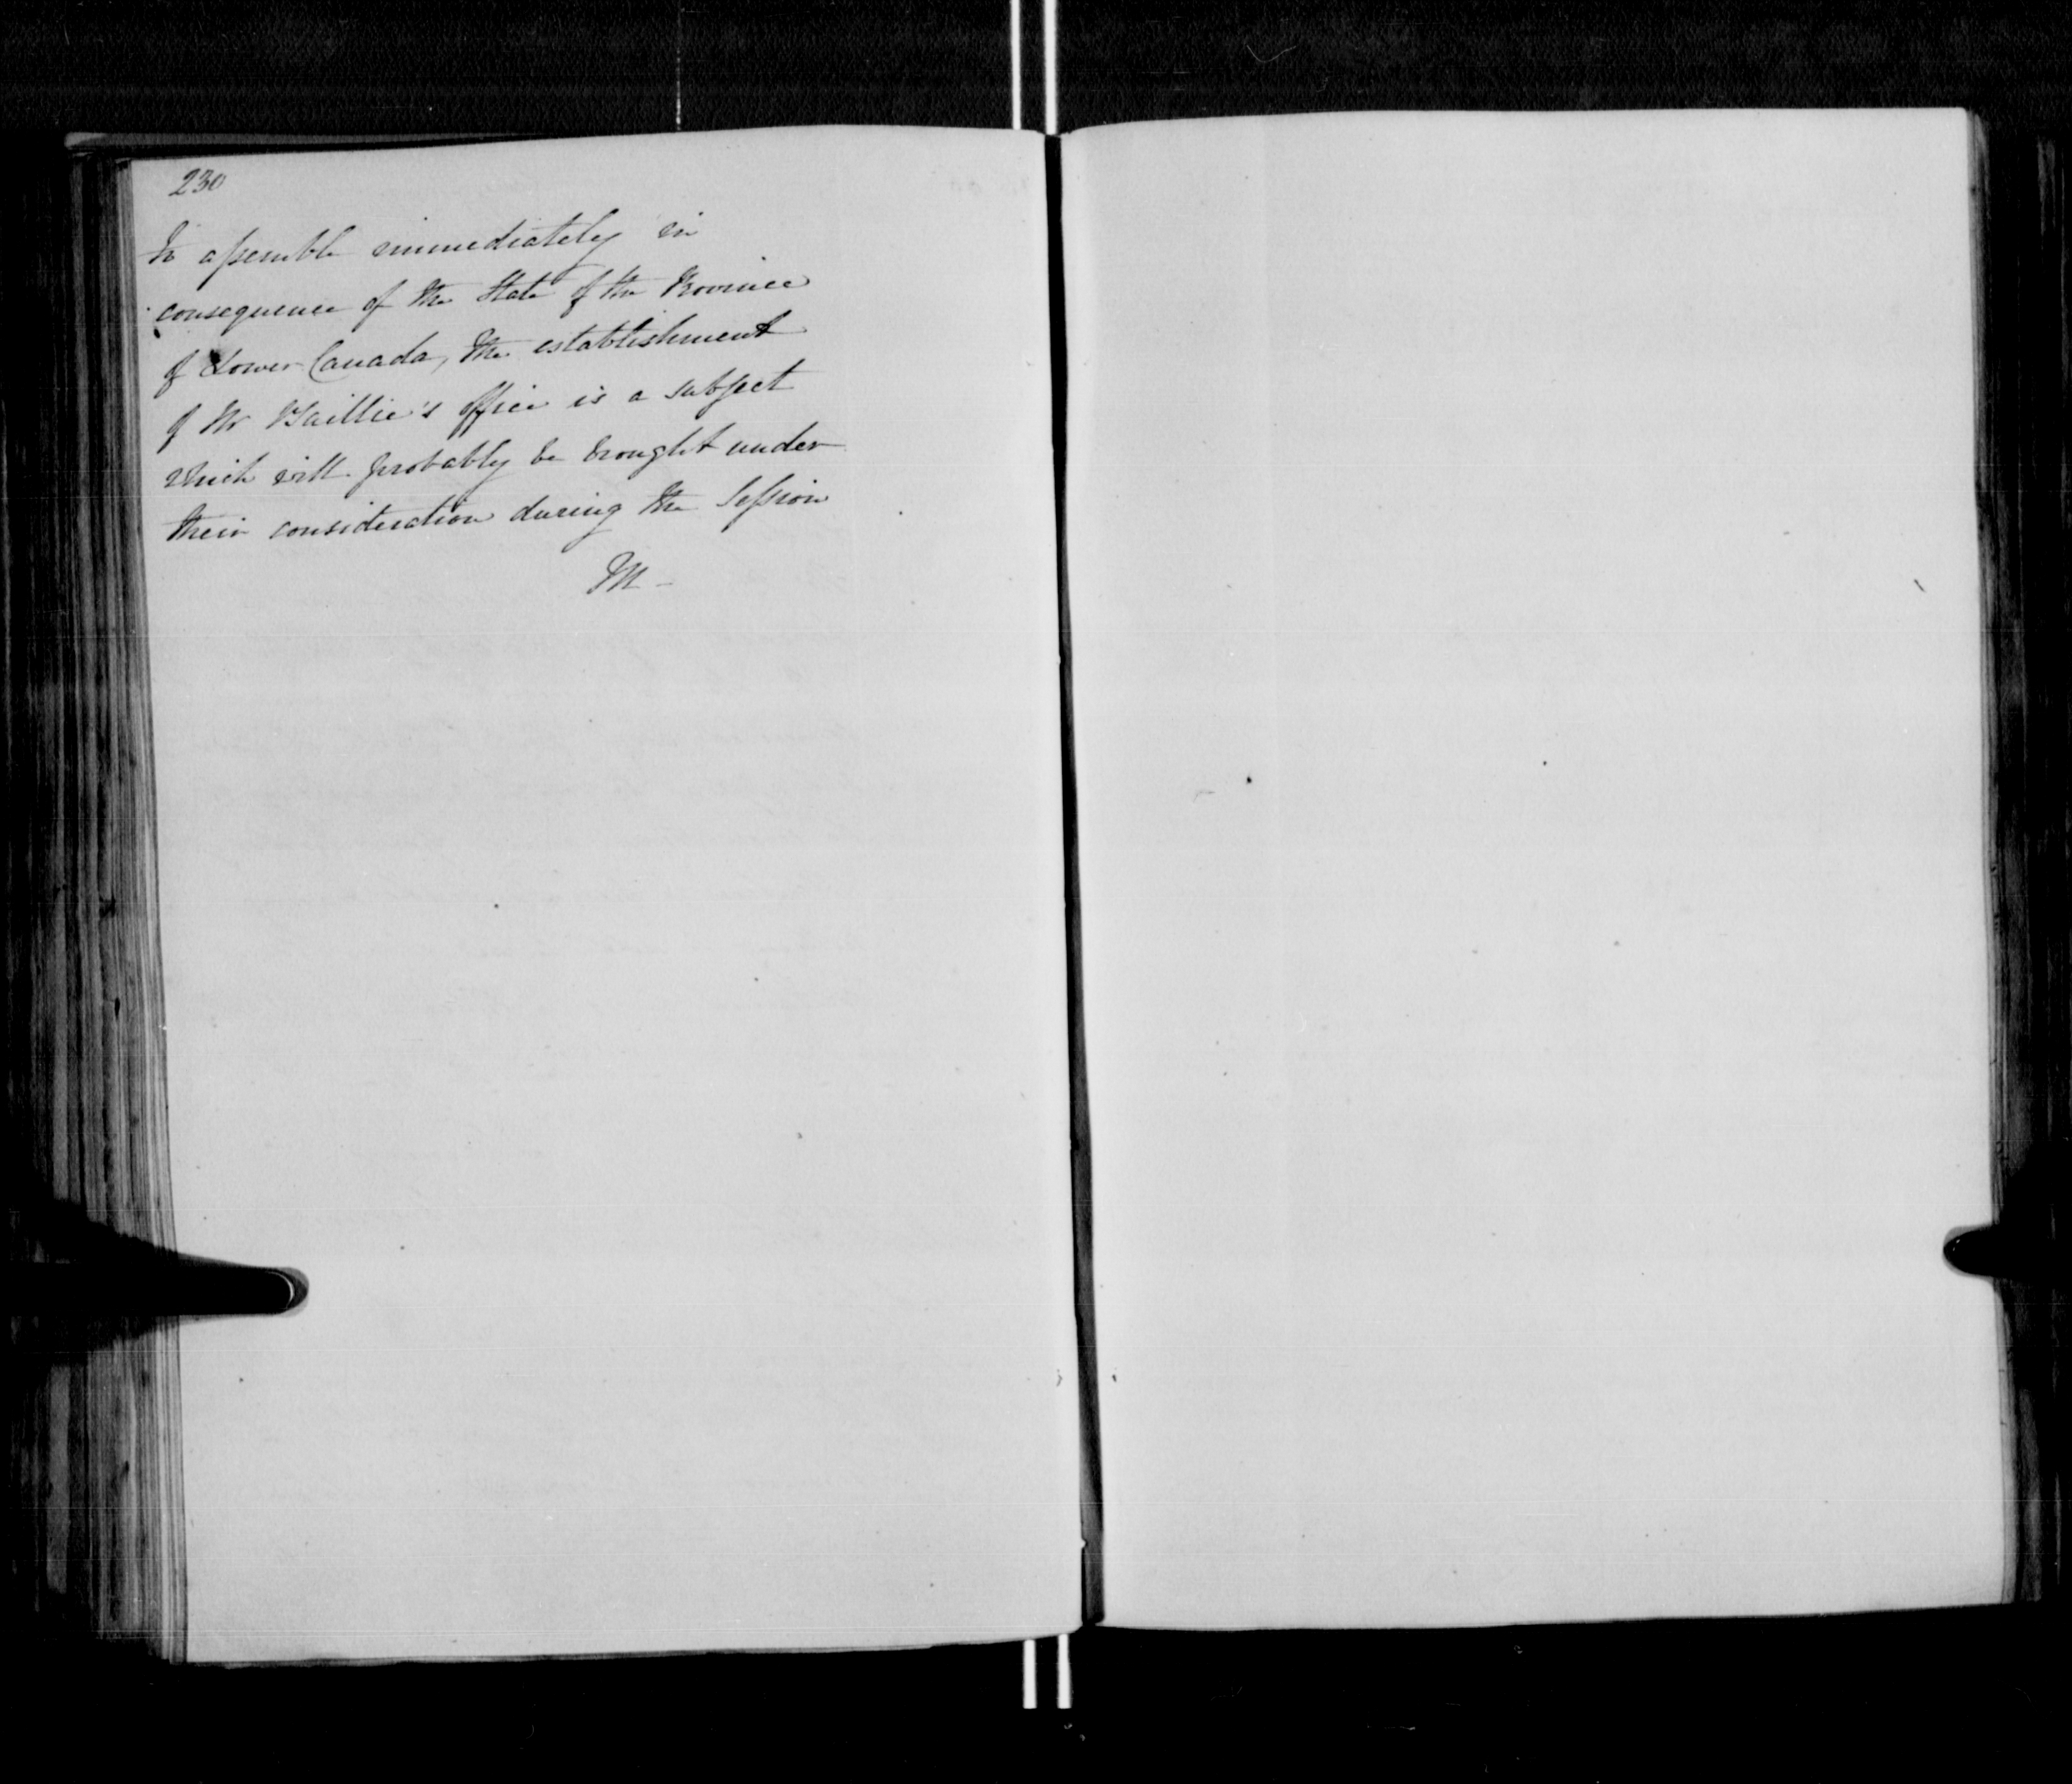 230
to assemble immediately in
consequence of the State of the Province
of Lower Canada, the establishment
of Mr Baillie's office is a subject
which will probably be brought under
their consideration during the Session
M -